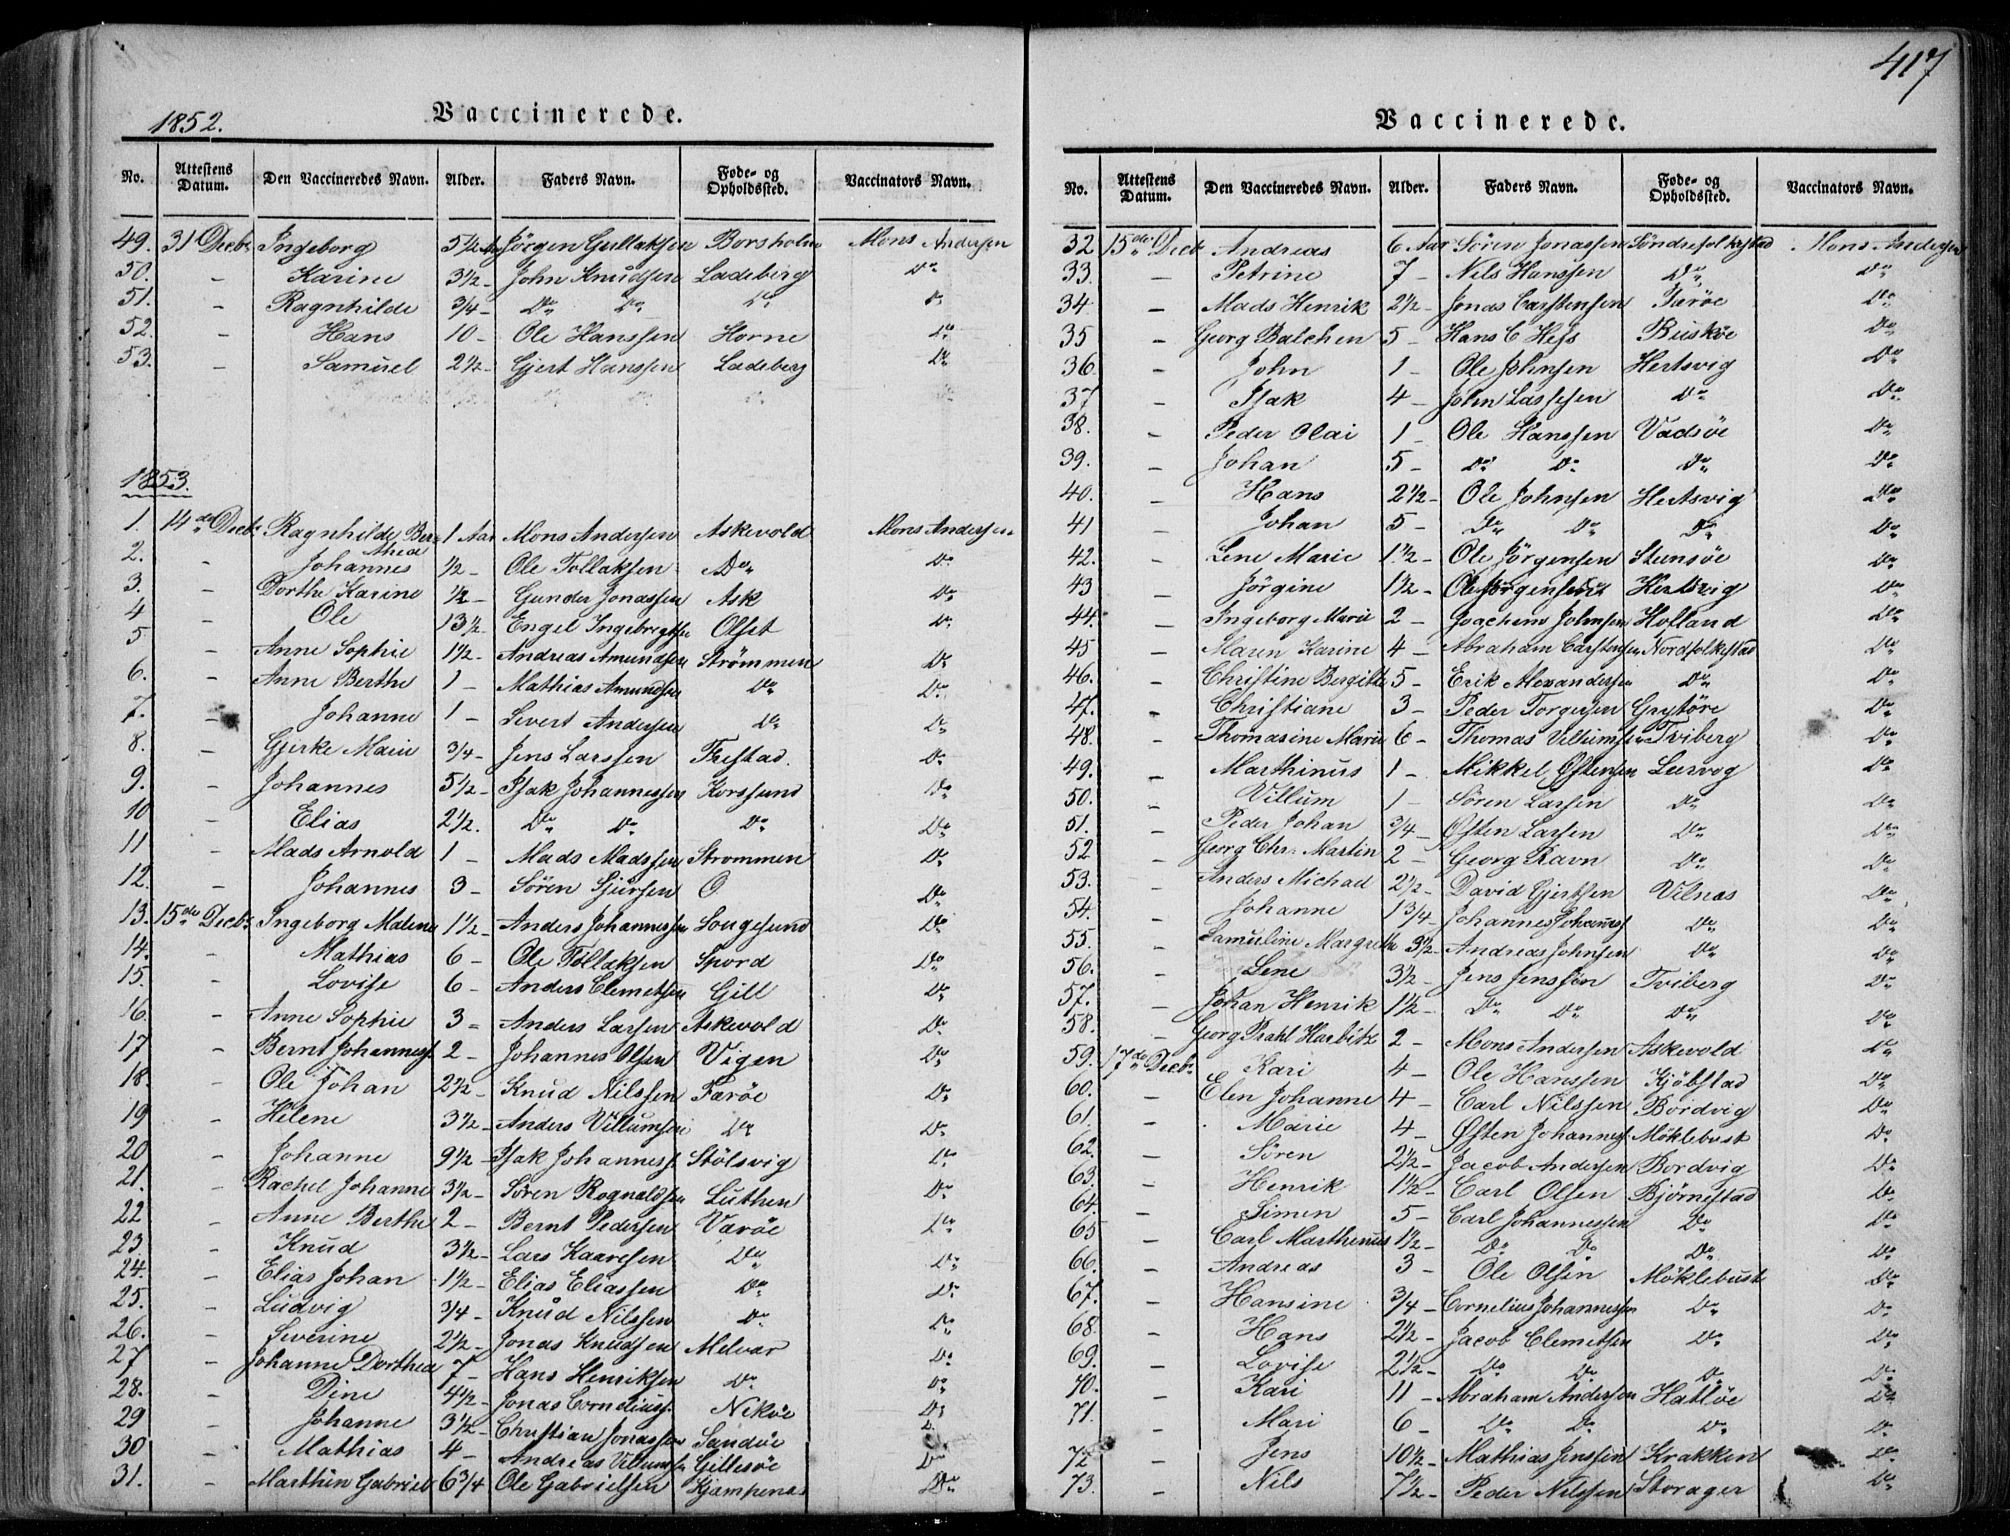 417
1852.
Vaccinerede.
No. Attestens Datum. Den Vaccineredes Navn. Alder. Faders Navn. Føde- og Opholdssted. Vaccinators Navn.
49. 31 Decbr Ingeborg 5½ Aar Jörgen Gullaksen Borsholm Mons Andersen
50. - Karine 3½ - John Knudsen Ladeberg Do
51. - Ragnhilde 3/4 - Do Do Do Do
52. - Hans 10 - Ole Hanssen Horne Do
53. - Samuel 2½ - Gjert Hanssen Ladeberg Do
1853.
1. 14de Decbr Ragnhilde Berthea 1 Aar Mons Andersen Askevold Mons Andersen
2. - Johannes ½ - Ole Tollaksen Do Do
3. - Dorthe Karine ½ - Gunder Jonassen Ask Do
4 - Ole 13½ - Engel Ingebrigtsen Olset Do
5 - Anne Sophie 1½ - Andreas Amundsen Strømmen Do
6. - Anne Berthe 1 - Mathias Amundsen Do Do
7. - Johanne 1 - Sivert Andersen Do Do
8. - Gjerke Marie 3/4 - Jens Larssen Frestad. Do
9. - Johannes 5½ - Isak Johannessen Korssund Do
10 - Elias 2½. Do Do Do Do
11 - Mads Arnold 1 - Mads Madssen Strommen Do
12. - Johannes 3 - Sören Sjursen O Do
13. 15de Decbr Ingeborg Malene 1½ - Anders Johannessen Songesund Do
14. - Mathias 6 - Ole Tollaksen Spord Do
15. - Lovise 6 - Anders Clemetsen Gill Do
16. - Anne Sophie 3 - Anders Larsen Askevold Do
17 - Bernt Johannes 2 - Johannes Olsen Vigen Do
18. - Ole Johan 2½ - Knud Nilssen Færöe Do
19 - Helene 3½ - Anders Villumsen Do Do
20 - Johanne 9½ - Isak Johanness. Stölsvig Do
21. - Rachel Johanne 3½ - Sören Rognaldsen Luthen Do
22 - Anne Berthe 2 - Bernt Pedersen Værøe Do
23. - Knud 3½ - Lars Kaaresen Do Do
24. - Elias Johan 1½ - Elias Eliassen Do Do
25. - Ludvig 3/4 - Knud Nilssen Do Do
26. - Severine 2½ - Jonas Knudsen Melvær Do
27 - Johanne Dorthea 7 - Hans Henriksen Do Do
28. - Dine 4½ - Jonas Corneliuss. Nikøe Do
29 - Johanne 3½ - Christian Jonassen Sandöe Do
30 - Mathias 4 - Andreas Villumsen Gillesøe Do
31. - Marthin Gabriel 6¾ Ole Gabrielsen Kjampenæs Do
Vaccinerede.
No. Attestens Datum. Den Vaccineredes Navn. Alder. Faders Navn. Føde- og Opholdssted. Vaccinators Navn.
32 15de Decbr Andreas 6 Aar Sören Jonassen Søndrefolkestad Mons Andersen
33. - Petrine 7 - Nils Hanssen Do Do
34 - Mads Henrik 2½ - Jonas Carstensen Færøe Do
35 - Georg Balchen 5 - Hans C Hess Buskøe Do
36 - John 1 - Ole Johnsen Hertsvig Do
37 - Isak 4 - John Lassesen Do Do
38. - Peder Olai 1 - Ole Hanssen Vadsöe Do
39. - Johan 5 - Do Do Do Do
40. - Hans 2½ - Ole Johnsen Hertsvig Do
41 - Johan 5 - Do Do Do Do
42. - Lene Marie 1½ - Ole Jörgensen Stensöe Do
43 - Jörgine 1½ - Ole Jörgensen Hertsvig Do
44. - Ingeborg Marie 2 - Joachim Johnsen Hofland Do
45 - Maren Karine 4 - Abraham Carstensen Nordfolkestad Do
46. - Christine Bergitte 5 - Erik Alexandersen Do Do
47. - Christiane 3 - Peder Torgersen Grytöre Do
48. - Thomasine Marie 6 - Thomas Vilhumsen Tviberg Do
49. - Marthinus 1 - Mikkel Østensen Leervog Do
50. - Villum 1 - Sören Larsen Do Do
51. - Peder Johan 3/4 - Østen Larsen Do Do
52 - Georg Chr: Martin 2 - Georg Ravn Do Do
53. - Anders Michael 2½ - David Gjertsen Vilnæs Do
54. - Johanne 1¾ Johannes Johannes. Do Do
55. - Samuline Margrethe 3½ - Andreas Johnsen Do Do
56. - Lene 3½ - Jens Jenssen Tviberg Do
57. - Johan Henrik 1½ - Do Do Do Do
58. - Georg Prahl Harbitz 2 - Mons Andersen Askevold Do
59. 17de Decbr Kari 4 - Ole Hanssen Kjöbstad Do
60. - Elen Johanne 4 - Carl Nilssen Bordvig Do
61. - Marie 4 - Østen Johannes. Möklebust Do
62. - Sören 2½ - Jacob Andersen Bordvig Do
63. - Henrik 1½ - Carl Olsen Bjørnestad Do
64. - Simen 5 - Carl Johannessen Do Do
65 - Carl Marthenus 1½ - Do Do Do Do
66. - Andreas 3 - Ole Olsen Möklebust Do
67. - Hansine 3/4 - Cornelius Johannessen Do Do
68. - Hans 2½ - Jacob Clemetsen Do Do
69. - Lovise 2½ - Do Do Do Do
70. - Kari 11 - Abraham Andersen Hatløe Do
71. - Mari 6 - Do Do Do Do
72 - Jens 10½ - Mathias Jenssen Krakken Do
73. - Nils 7½ - Peder Nilssen Storager Do